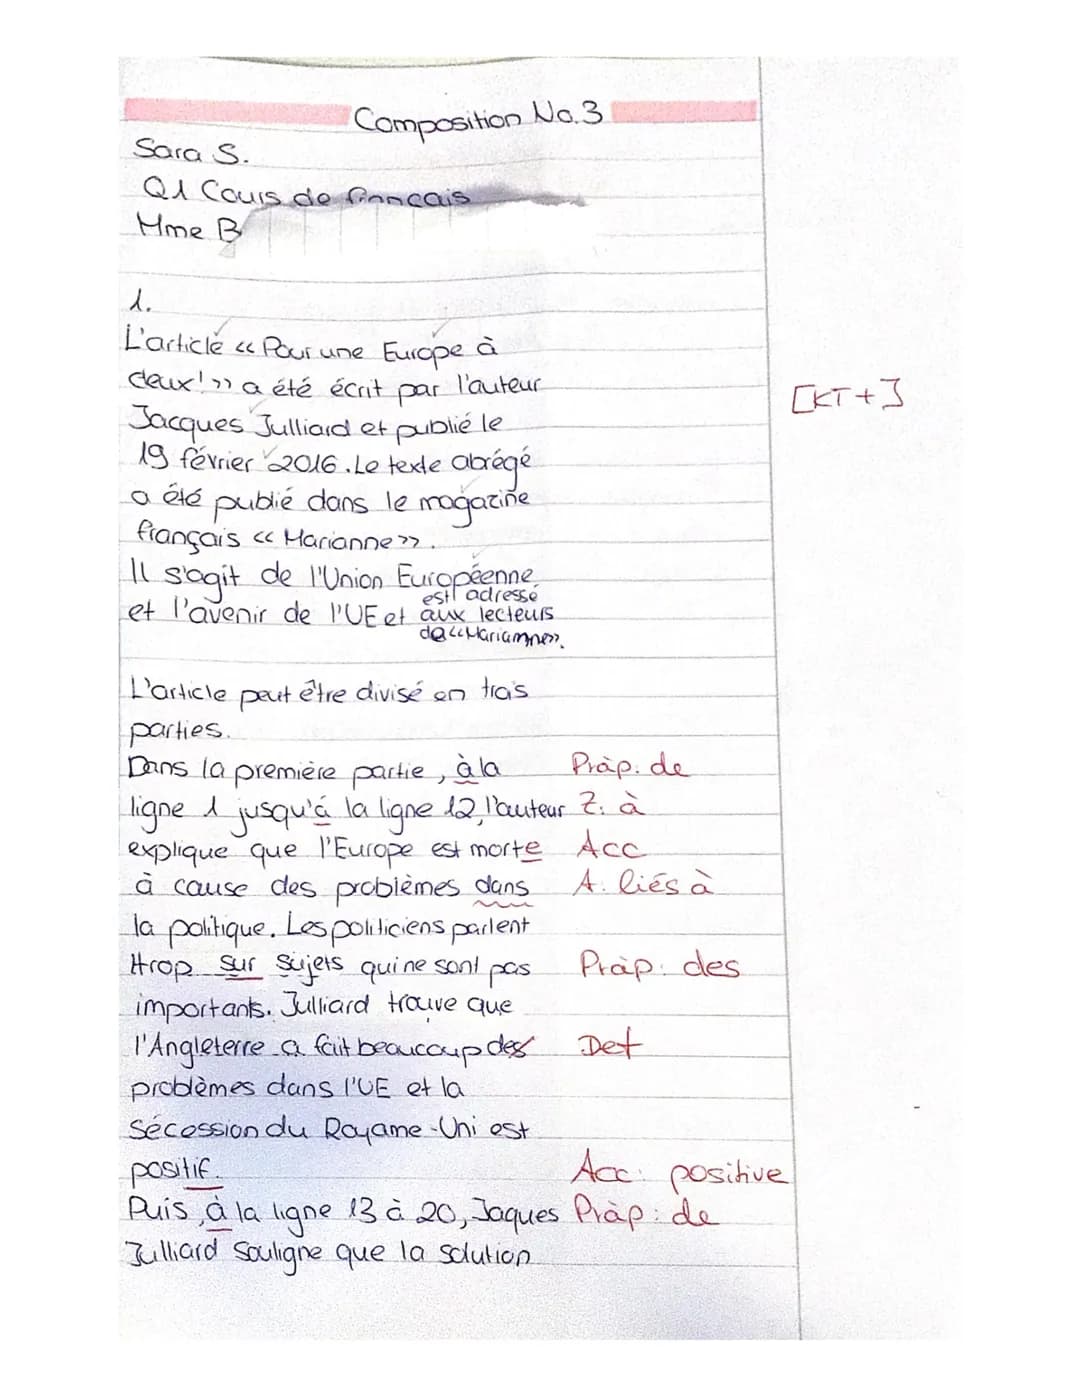 Composition No.3
Sara S.
Q1 Cours de français
Mme B
1.
L'article << Pour une Europe à
deux! >> a été écrit par l'auteur
Jacques Julliard et publié le
19 février 2016. Le texte abrégé
a été publié dans le magazine
français << Marianne >>.
Il s'agit de l'Union Européenne
et l'avenir de l'UE et est adressé aux lecteurs
de <<Marianne>>.
[KT+]
L'article peut être divisé en trois
parties.
Dans la première partie, à la Präp. de
ligne 1 jusqu'á la ligne 12, l'auteur Z. à
explique que l'Europe est morte Acc
à cause des problèmes dans A. liés à
la politique. Les politiciens parlent
trop sur sujets qui ne sont pas Präp. des
importants. Julliard trouve que
l'Angleterre a fait beaucoup des Det
problèmes dans l'UE et la
sécession du Royaume-Uni est
positif. Acc: positive
Puis, à la ligne 13 à 20, Jaques Präp: de
Julliard souligne que la solution